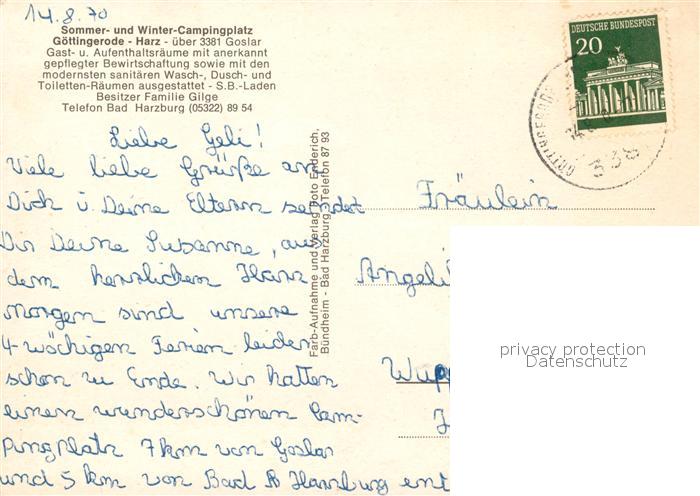 14.8.70
Sommer- und Winter-Campingplatz
Göttingerode - Harz - über 3381 Goslar
Gast- u. Aufenthaltsräume mit anerkannt
gepflegter Bewirtschaftung sowie mit den
modernsten sanitären Wasch-, Dusch- und
Toiletten-Räumen ausgestattet - S.B.-Laden
Besitzer Familie Gilge
Telefon Bad Harzburg (05322) 89 54
DEUTSCHE BUNDESPOST
20
338
Liebe Geli!
Viele liebe Grüße an
Dich u. Deine Eltern sendet
Dir Deine Susanne, aus
dem herrlichen Harz
morgen sind unsere
4-wöchigen Ferien leider
schon zu Ende. Wir hatten
einen wunderschönen Cam-
pingplatz 7km von Goslar
und 5 km von Bad Harzburg ent
Farb-Aufnahme und Verlag Foto Enderich,
Bündheim - Bad Harzburg, Telefon 87 93
Fräulein
Angeli
Wupp
privacy protection
Datenschutz